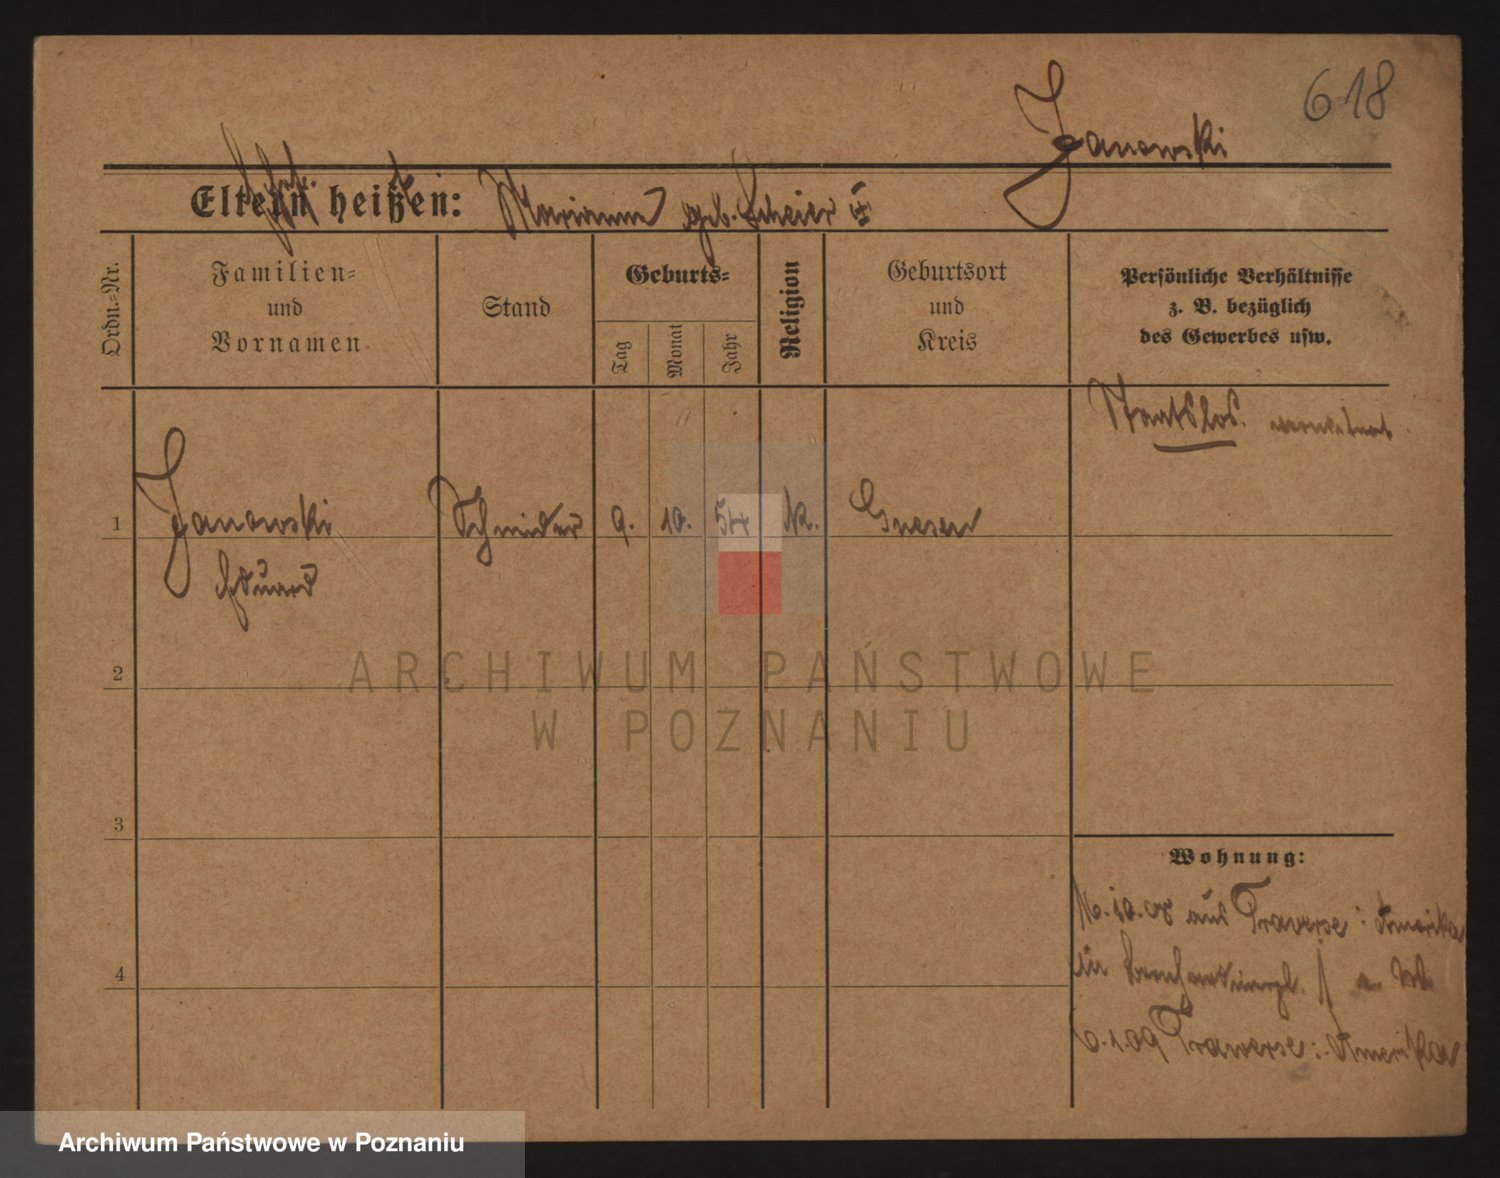 618
Janowski
Eltern heißen: Mariann geb. Scheier II
Ordn.=Nr.
Familien=
und
Vornamen
Stand
Geburts=
Tag
Monat
Jahr
Religion
Geburtsort
und
Kreis
Persönliche Verhältnisse
z. B. bezüglich
des Gewerbes usw.
Staatslos.
1 Janowski Schneider 9. 10. 54 k. Gnesen
Eduard
2
3
4
Wohnung:
16.10.08 aus Traverse: Amerika
6.1.09 Traverse: Amerika
ARCHIWUM PAŃSTWOWE
W POZNANIU
Archiwum Państwowe w Poznaniu